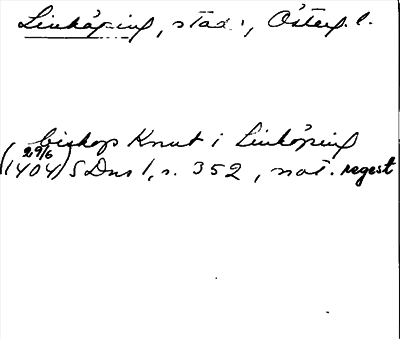 Linköping, stad, Österg. l.
biskop Knut i Linköping
29/6
(1404) SDns 1, s. 352, not. regest